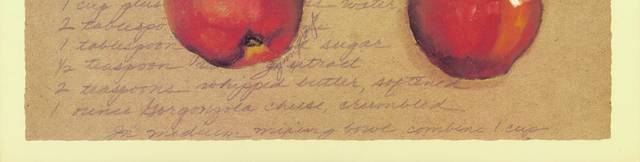 1 cup plus water
2 tablespo
1 tablespoon sugar
½ teaspoon extract
2 teaspoons whipped butter, softened
1 ounce Gorgonzola cheese, crumbled
In medium mixing bowl combine 1 cup